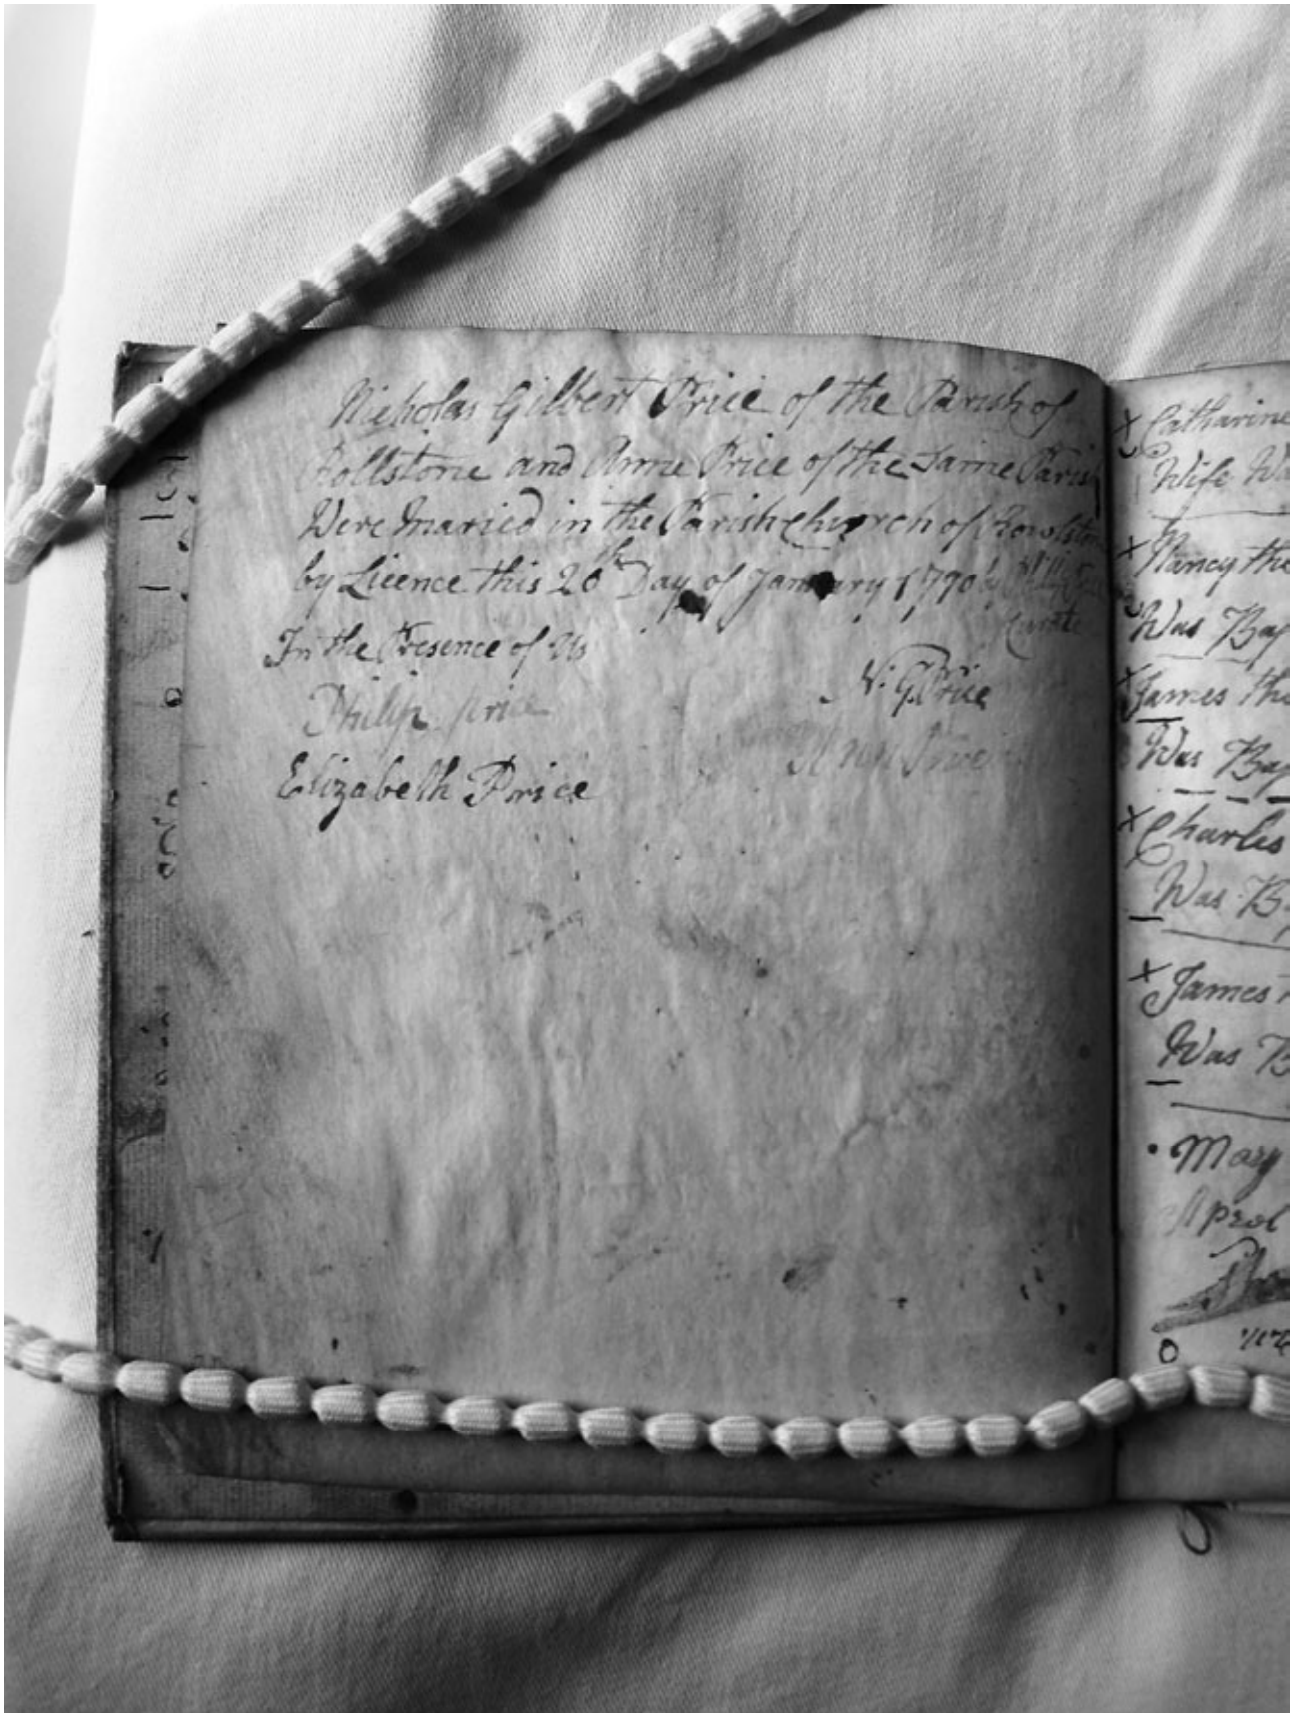 Nicholas Gilbert Price of the Parish of
Rollstone and Anne Price of the Same Parish
Were Maried in the Parish Church of Rowlstone
by Licence this 26th Day of January 1790 by
Curate
In the Presence of Us
N. G. Price
Philip price
Ann Price
Elizabeth Price
x Catharine
Wife Wa
x Nancy the
Was Bap
James the
Was Bap
x Charles
Was Ba
x James
Was B
Mary
Aprol